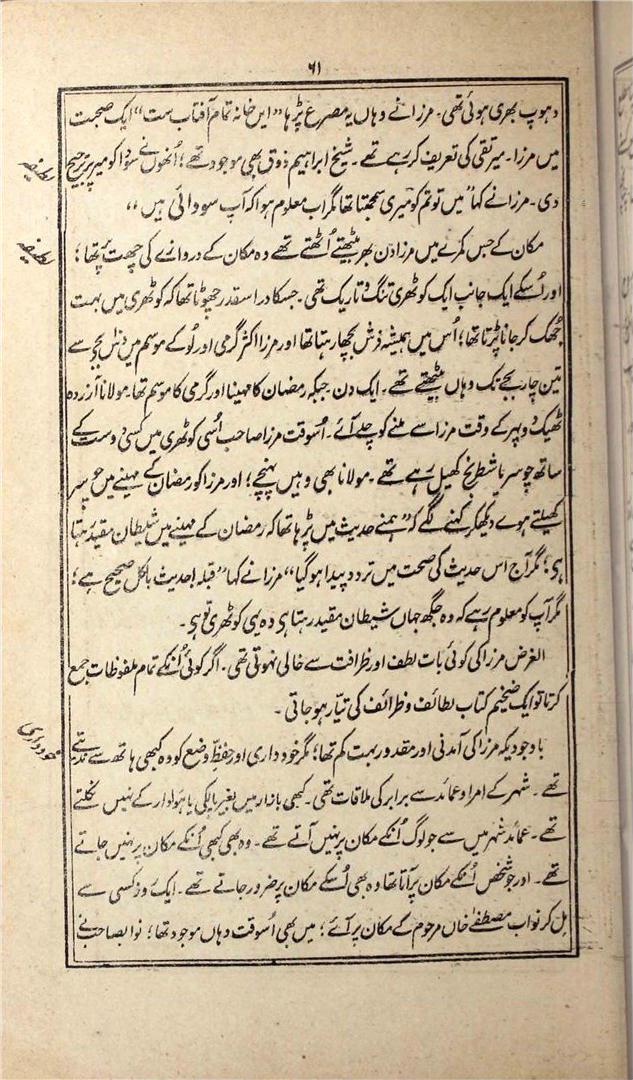 ۶۱
دہوپ بھری ہوئی تھی۔ مرزا نے وہاں یہ مصرع پڑہا "این خانہ تمام آفتاب ست" ایک صحبت
میں مرزا۔ میر تقی کی تعریف کر رہے تھے۔ شیخ ابراہیم ذوق بھی موجود تھے؛ اُنھوں نے سودا کو میر پر ترجیح
لطیفہ
دی۔ مرزا نے کہا "میں تو تم کو میری سمجھتا تھا مگر اب معلوم ہوا کہ آپ سودائی ہیں"
مکان کے جس کمرے میں مرزا دن بھر بیٹھتے اُٹھتے تھے وہ مکان کے دروازے کی چھت پر تھا؛
لطیفہ
اور اُسکے ایک جانب ایک کوٹھری تنگ و تاریک تھی۔ جسکا در اسقدر چھوٹا تھا کہ کوٹھری میں بہت
جُھک کر جانا پڑتا تھا؛ اُس میں ہمیشہ فرش بچھا رہتا تھا اور مرزا اکثر گرمی اور لُو کے موسم میں دس بجے سے
تین چار بجے تک وہاں بیٹھتے تھے۔ ایک دن جبکہ رمضان کا مہینا اور گرمی کا موسم تھا۔ مولانا آزردہ
ٹھیک دوپہر کے وقت مرزا سے ملنے کو چلے آئے۔ اُسوقت مرزا صاحب اُسی کوٹھری میں کسی دوست کے
ساتھ چوسر یا شطرنج کھیل رہے تھے۔ مولانا بھی وہیں پہنچے؛ اور مرزا کو رمضان کے مہینے میں چوسر
کھیلتے ہوے دیکھکر کہنے لگے کہ "ہمنے حدیث میں پڑہا تھا کہ رمضان کے مہینے میں شیطان مقید رہتا
ہی؛ مگر آج اس حدیث کی صحت میں تردد پیدا ہو گیا" مرزا نے کہا "قبلہ! حدیث بالکل صحیح ہے؛
مگر آپ کو معلوم رہے کہ وہ جگھ جہاں شیطان مقید رہتا ہی وہ یہی کوٹھری تو ہی۔
الغرض مرزا کی کوئی بات لطف اور ظرافت سے خالی نہوتی تھی۔ اگر کوئی اُنکے تمام ملفوظات جمع
کرتا تو ایک ضخیم کتاب لطائف و ظرائف کی تیار ہو جاتی۔
باوجودیکہ مرزا کی آمدنی اور مقدور بہت کم تھا؛ مگر خودداری اور حفظِ وضع کو وہ کبھی ہاتھ سے ندیتے
خودداری
تھے۔ شہر کے امرا و عمائد سے برابر کی ملاقات تھی۔ کبھی بازار میں بغیر پالکی یا ہوادار کے نہیں نکلتے
تھے۔ عمائد شہر میں سے جو لوگ اُنکے مکان پر نہیں آتے تھے۔ وہ بھی کبھی اُنکے مکان پر نہیں جاتے
تھے۔ اور جو شخص اُنکے مکان پر آتا تھا وہ بھی اُسکے مکان پر ضرور جاتے تھے۔ ایک روز کسی سے
مِل کر نواب مصطفےٰ خاں مرحوم کے مکان پر آئے؛ میں بھی اُسوقت وہاں موجود تھا؛ نوابصاحب نے